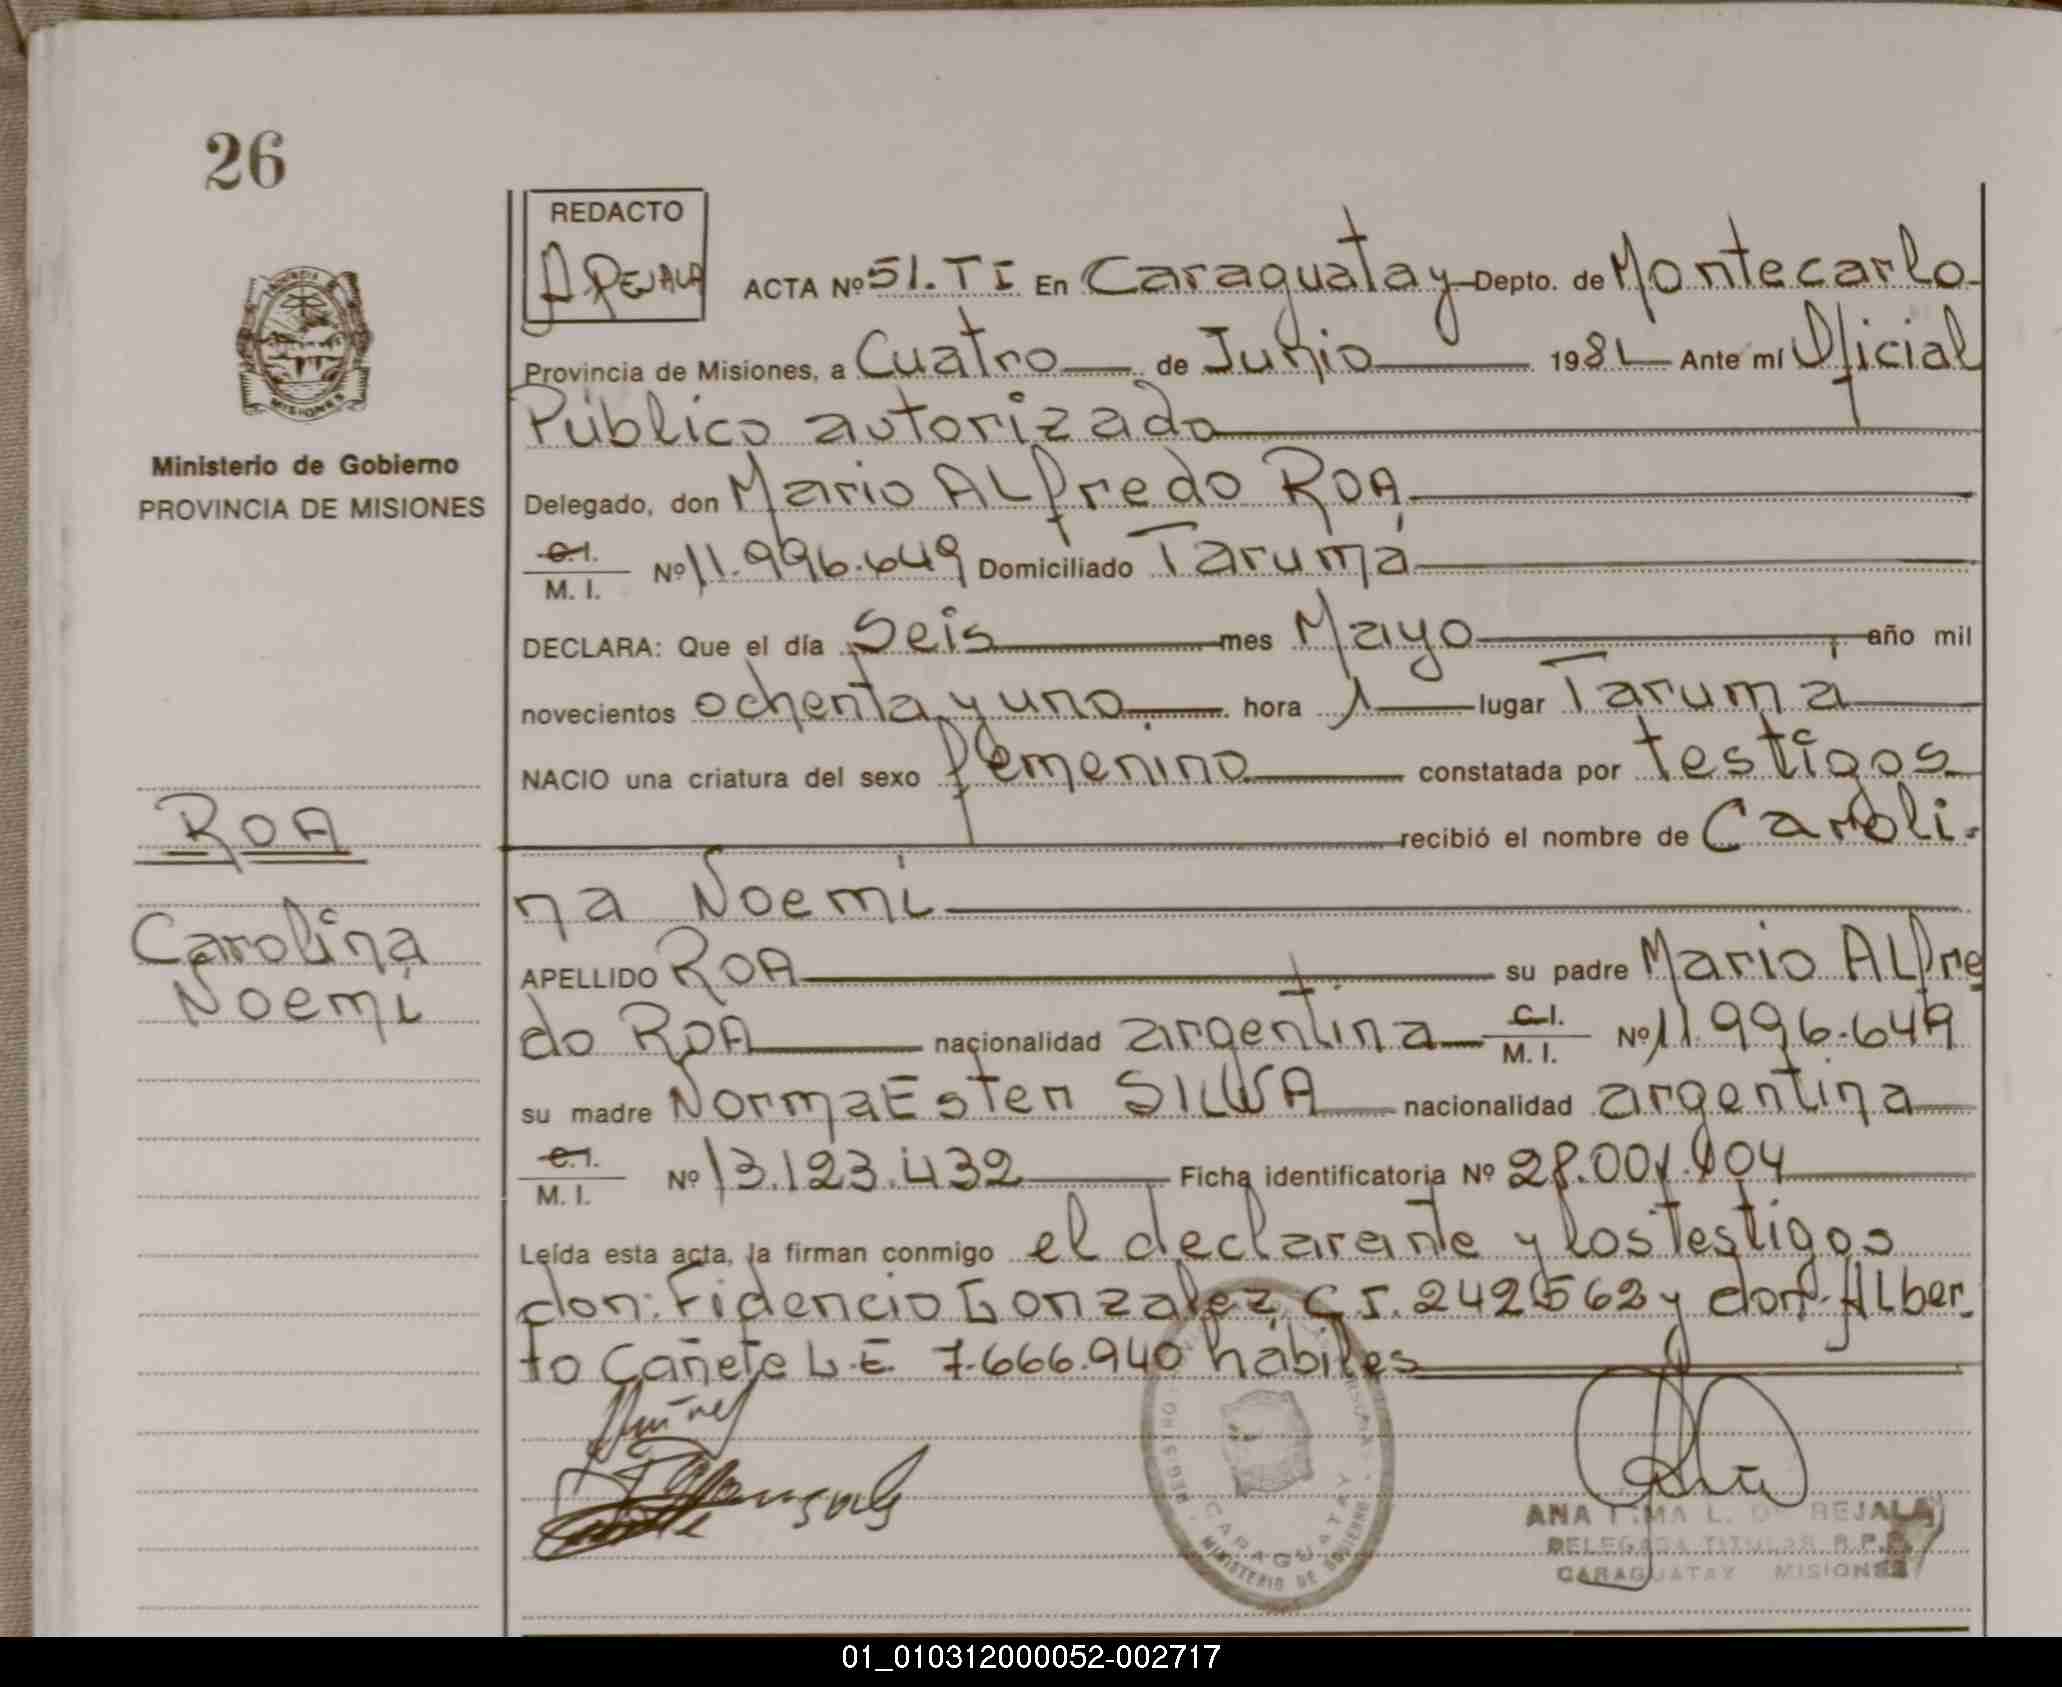 26
REDACTO
A REJALA
ACTA Nº 51. T I En Caraguatay Depto. de Montecarlo
Provincia de Misiones, a Cuatro de Junio 1981 Ante mí Oficial
Público autorizado
Delegado, don Mario Alfredo ROA
C.I. / M. I. Nº 11.996.649 Domiciliado Tarumá
DECLARA: Que el día Seis mes Mayo año mil
novecientos ochenta y uno hora 1 lugar Tarumá
NACIO una criatura del sexo femenino constatada por testigos
recibió el nombre de Caroli-
na Noemí
APELLIDO ROA su padre Mario Alfre
do ROA nacionalidad argentina C.I. / M. I. Nº 11.996.649
su madre Norma Ester SILVA nacionalidad argentina
C.I. / M. I. Nº 13.123.432 Ficha identificatoria Nº 28.001.104
Leída esta acta, la firman conmigo el declarante y los testigos
don: Fidencio Gonzalez C I. 242562 y don Alber-
to Cañete L.E. 7.666.940 hábiles
MISIONES
Ministerio de Gobierno
PROVINCIA DE MISIONES
ROA
Carolina
Noemí
CARAGUATAY
MINISTERIO DE GOBIERNO
ANA L. DE REJALA
DELEGADA TITULAR R.P.
CARAGUATAY MISIONES
01_010312000052-002717